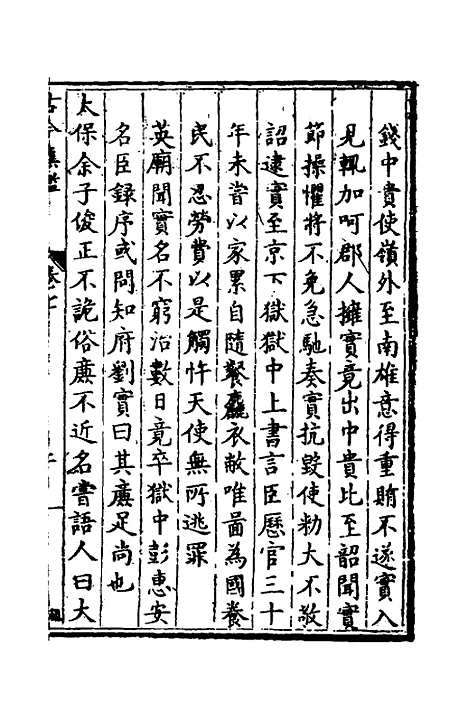 錢中貴使嶺外至南雄意得重賄不遂實入
見輒加呵郡人擁實竟出中貴比至韶聞實
節操懼將不免急馳奏實抗毀使勑大不敬
詔逮實至京下獄獄中上書言臣歷官三十
年未嘗以家累自隨餐麤衣敝唯啚為國養
民不忍勞費以是觸忤天使無所逃罪
英廟聞實名不窮治數日竟卒獄中彭惠安
名臣録序或問知府劉實曰其亷足尚也
太保余子俊正不詭俗亷不近名嘗語人曰大
古今亷鑑
卷七